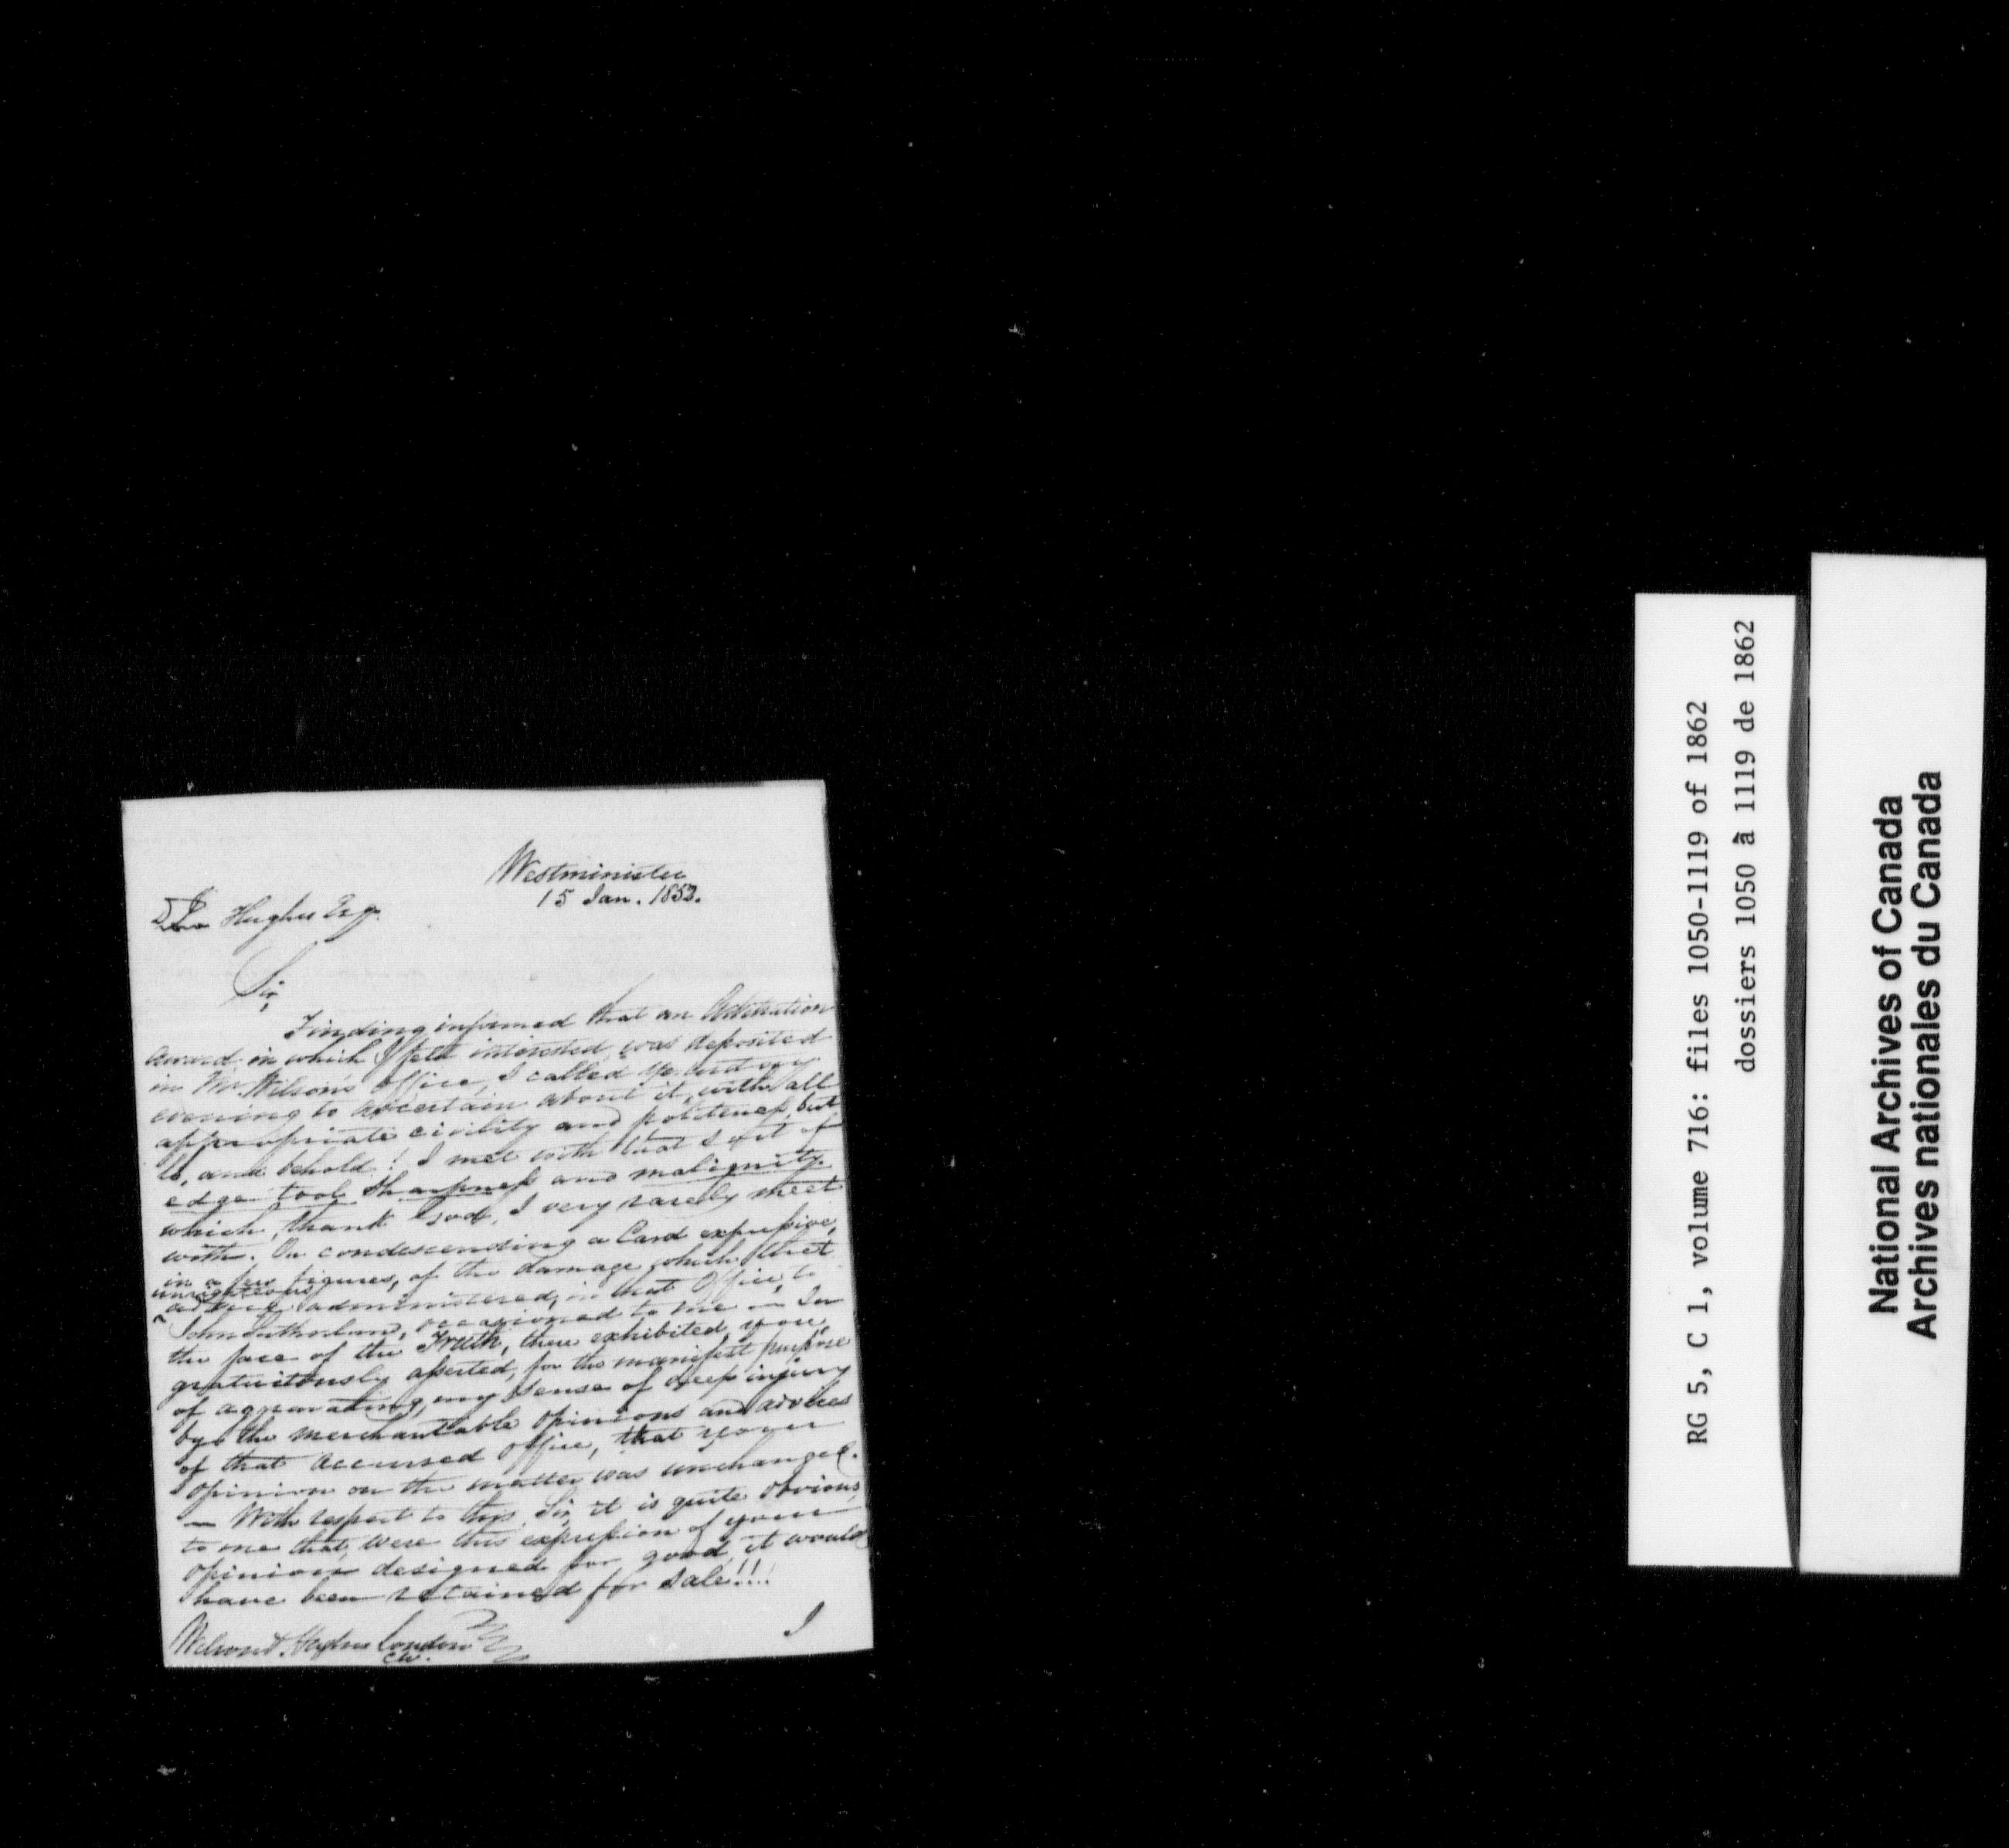 Westminister
15 Jan. 1853.
Hughes Esq.
Sir,
Finding informed that an Arbitration
award in which I felt interested was deposited
in Mr. Wilson's Office, I called yesterday
evening to ascertain about it, with all
appropriate civility and politeness, but
lo, and behold! I met with that sort of
edge tool sharpness and malignity
which, thank God, I very rarely meet
with. On condescending a Card expressive,
in a few figures, of the damage which that
unrighteous
advice administered, in that Office, to
John Sutherland, occasioned to me — In
the face of the Truth, there exhibited, you,
gratuitously asserted, for the manifest purpose
of aggravating, my sense of deep injury
by the merchantable opinions and advices
of that accursed office, that your
opinion on the matter was unchanged.
— With respect to this, Sir, it is quite obvious,
to me that, were this expression of your
opinion designed for good, it would
have been retained for sale!!!!
I
Wilson & Hughes London
C.W.
RG 5, C 1, volume 716: files 1050-1119 of 1862
dossiers 1050 à 1119 de 1862
National Archives of Canada
Archives nationales du Canada